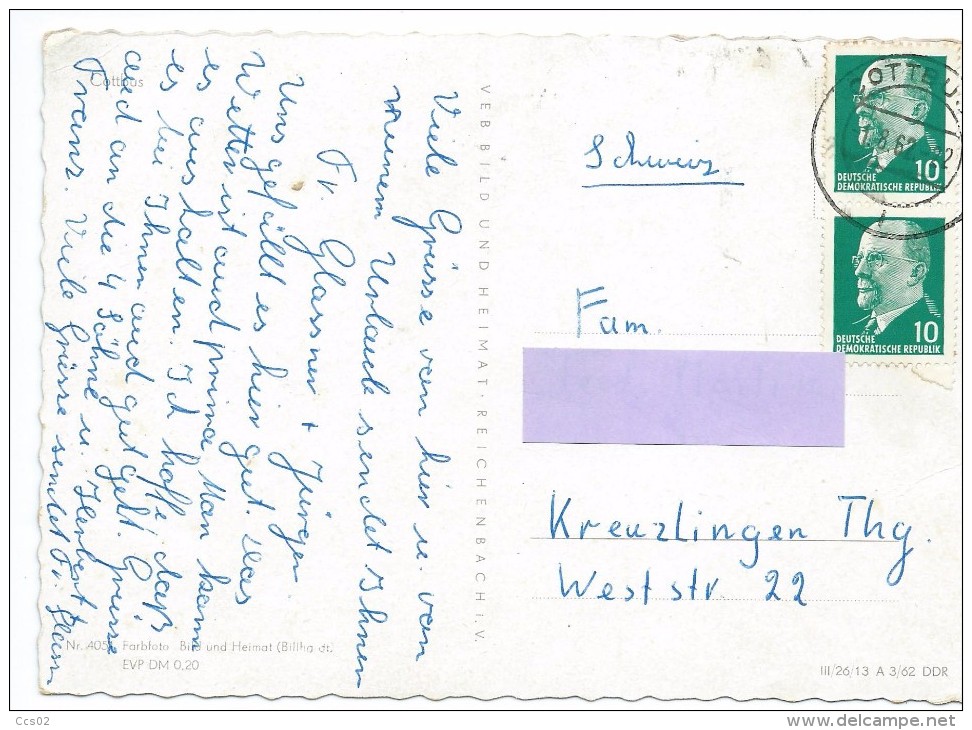 Cottbus
Viele Grüsse von hier u. von
meinem Urlaub sendet Ihnen
Fr. Glassner + Jürgen.
Uns gefällt es hier gut. Das
Wetter ist auch prima. Man kann
es aushalten. Ich hoffe daß
es bei Ihnen auch gut geht. Grüsse
auch an die 4 Söhne u. Herbert +
Franz. Viele Grüsse sendet Fr. Glassn
VEB BILD UND HEIMAT · REICHENBACH i. V.
Schweiz
Fam.
Kreuzlingen Thg.
Weststr. 22
10
DEUTSCHE
DEMOKRATISCHE REPUBLIK
10
DEUTSCHE
DEMOKRATISCHE REPUBLIK
Farbfoto Bild und Heimat
EVP DM 0,20
III/26/13 A 3/62 DDR
Ccs02
delcampe.net